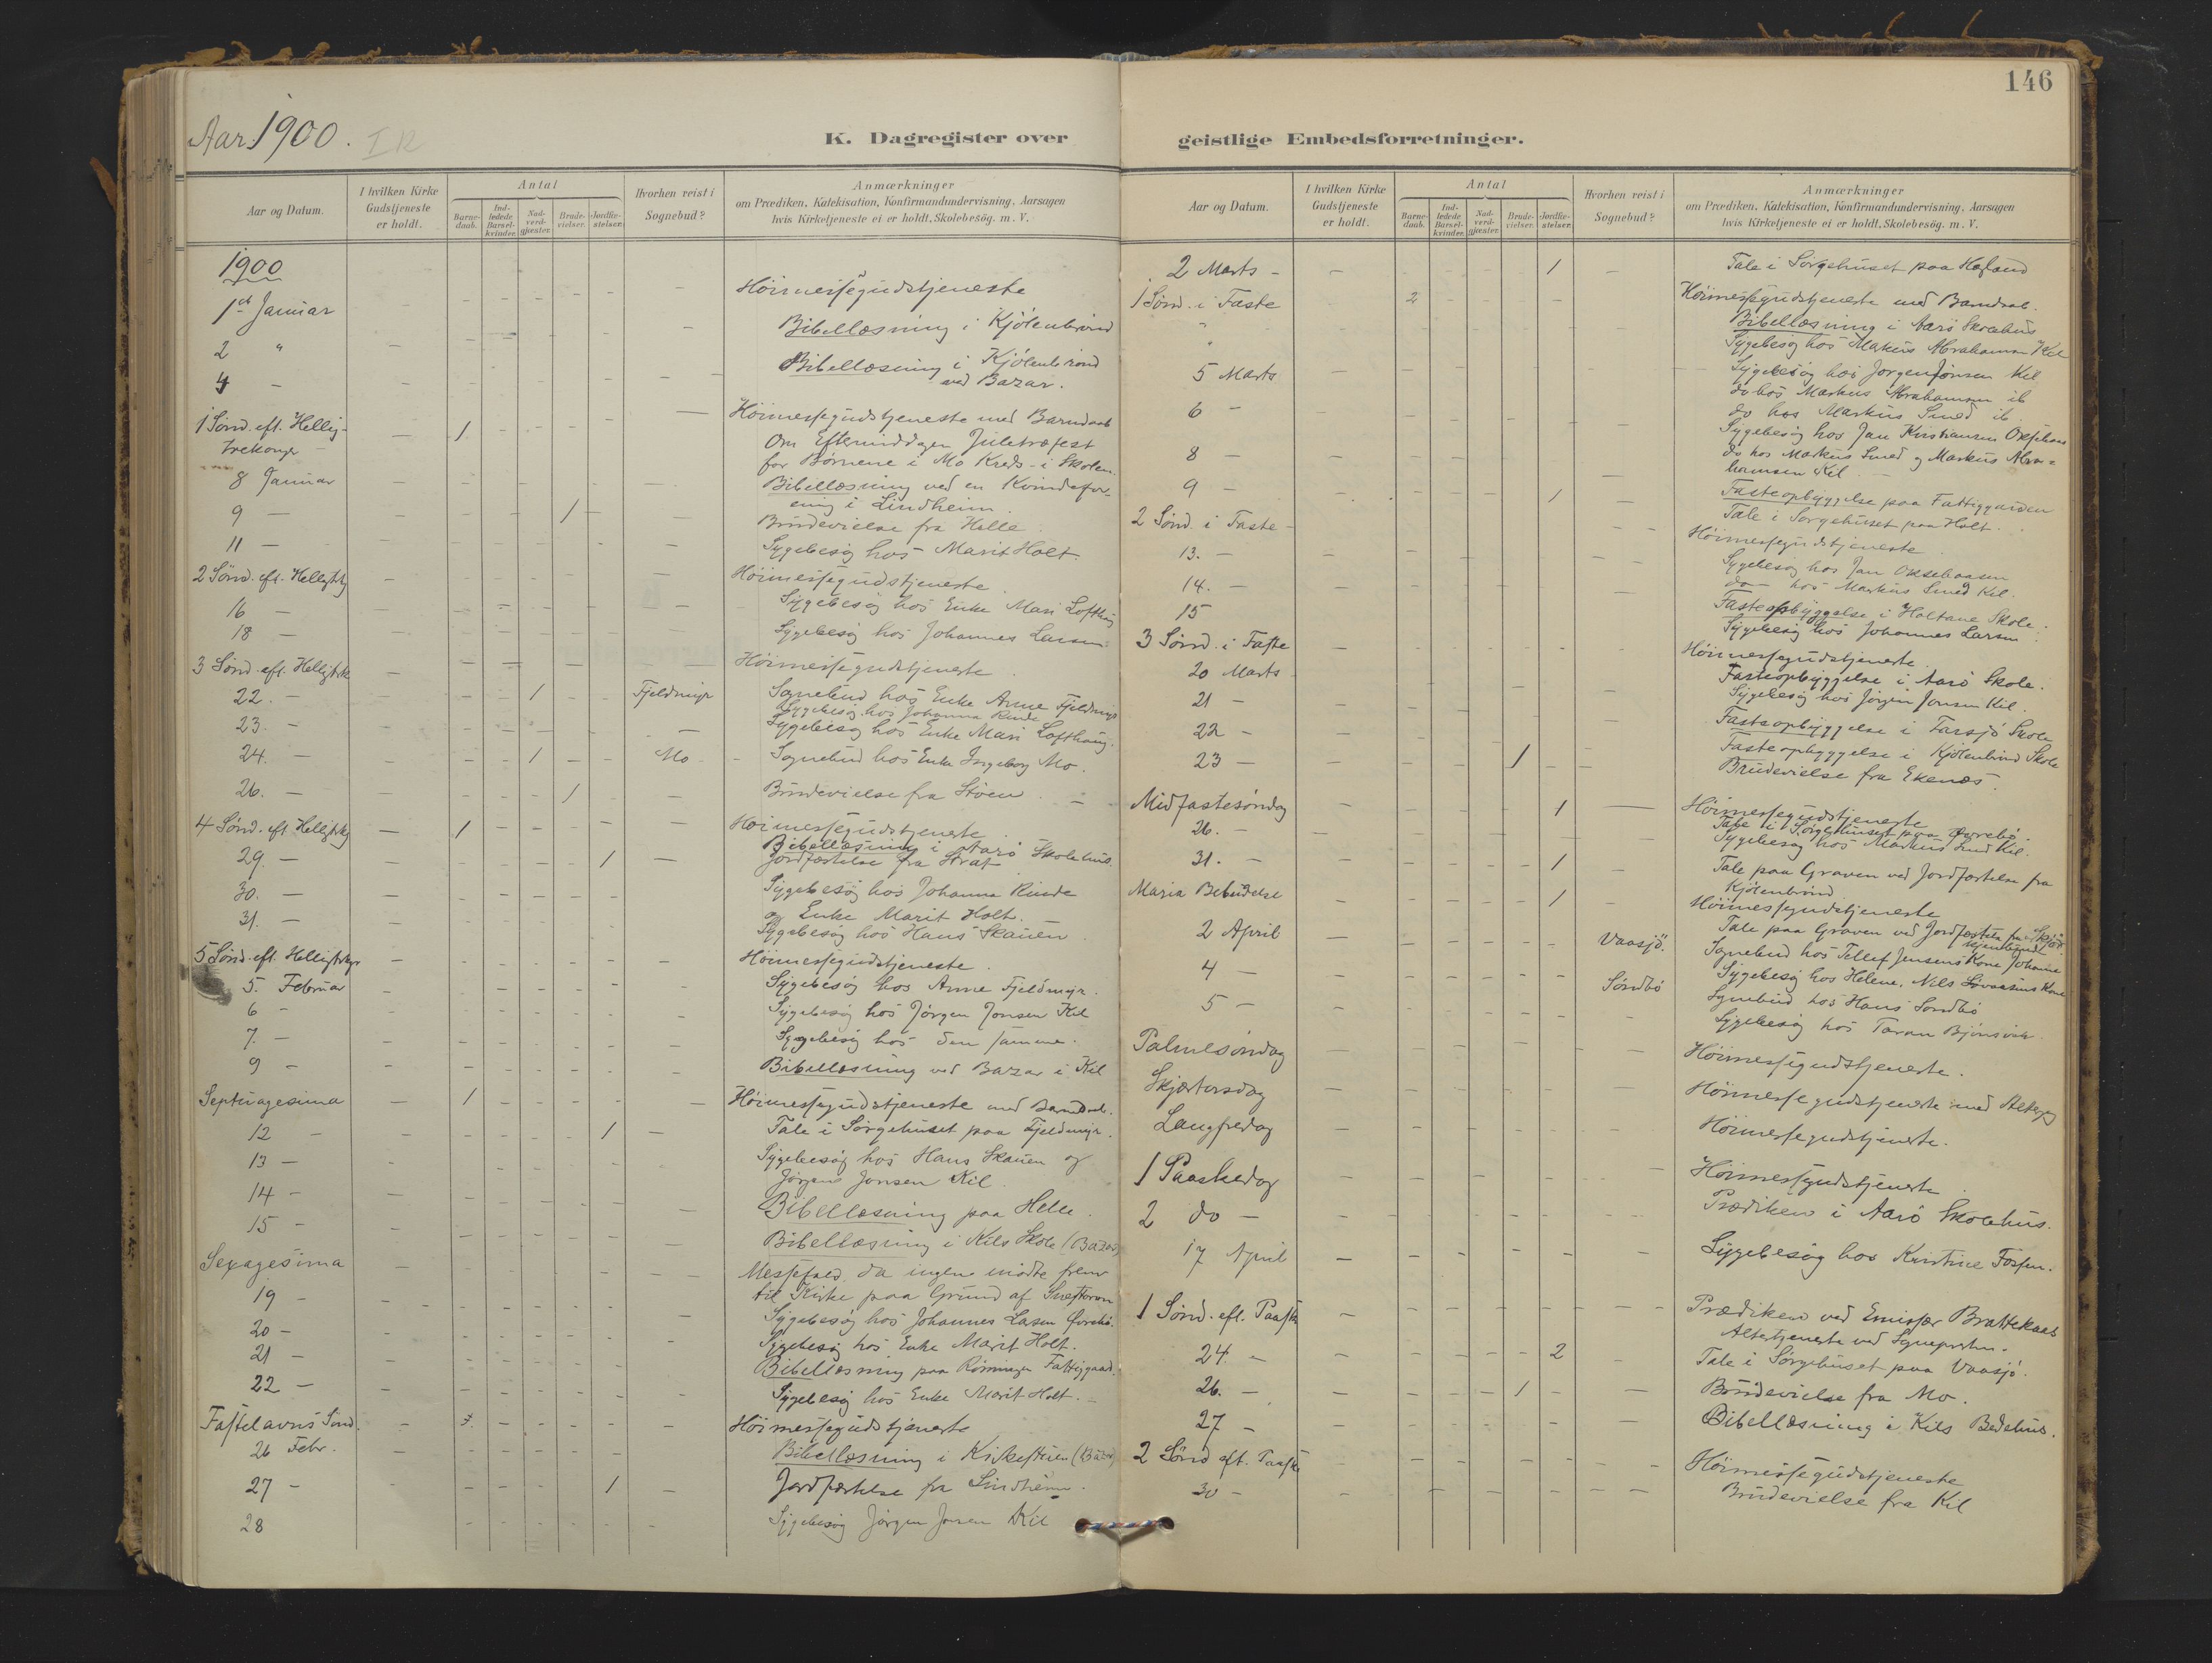 146
Aar 1900. I R
K. Dagregister over geistlige Embedsforretninger.
Aar og Datum.
I hvilken Kirke Gudstjeneste er holdt.
Antal
Barnedaab.
Indledede Barselkvinder.
Nadverdgjæster.
Brudevielser.
Jordfæstelser.
Hvorhen reist i Sognebud?
Anmærkninger
om Prædiken, Katekisation, Konfirmandundervisning, Aarsagen
hvis Kirketjeneste ei er holdt, Skolebesög. m. V.
1900
1st Januar - - - - - - - Höimessegudstjeneste
2 " - - - - - - - Bibellæsning i Kjölenbrönd
4 - - - - - - - Bibellæsning i Kjölenbrönd
ved Bazar.
1 Sönd. eft. Hellig- - 1 - - - - - Höimessegudstjeneste med Barndaab
trekonger - Om Eftermiddagen Juletræfest
for Börnene i Mo Kreds - i Skolen.
8 Januar - - - - - - - Bibellæsning ved en Kvindefor-
ening i Lindheim.
9 - - - - - 1 - - Brudevielse fra Helle.
11 - - - - - - - - Sygebesög hos Marit Holt.
2 Sönd. eft. Helligtrk - - - - - - - Höimessegudstjeneste
16 - - - - - - - - Sygebesög hos Enke Mari Lofthaug
18 - - - - - - - - Sygebesög hos Johannes Larsen.
3 Sönd. eft. Helligtrk - - - - - - - Höimessegudstjeneste
22. - - - - 1 - - Fjeldmyr Sognebud hos Enke Anne Fjeldmyr
Sygebesög hos Johanna Rinde
23. - - - - - - - - Sygebesög hos Enke Mari Lofthaug.
24. - - - - 1 - - Mo Sognebud hos Enke Ingeborg Mo.
26. - - - - - 1 - - Brudevielse fra Stöen.
4 Sönd. eft. Helligtrk - 1 - - - - - Höimessegudstjeneste
Bibellæsning i Aarö Skolehus.
29. - - - - - - 1 - Jordfæstelse fra Strat
30. - - - - - - - Sygebesög hos Johanna Rinde
og Enke Marit Holt.
31. - - - - - - Sygebesög hos Hans Skauen
5 Sönd. eft. Helligtrkgr - - - - - - - Höimessegudstjeneste.
5. Februar - - - - - - - Sygebesög hos Anne Fjeldmyr.
6 - - - - - - - - Sygebesög hos Jörgen Jonsen Kil
7. - - - - - - - - Sygebesög hos den samme.
9 - - - - - - - - Bibellæsning ved Bazar i Kil
Septuagesima - 1 - - - - - Höimessegudstjeneste med Barndaab.
12 - - - - - - 1 - Tale i Sörgehuset paa Fjeldmyr.
13 - - - - - - - Sygebesög hos Hans Skauen og
Jörgen Jonsen Kil.
14 - - - - - - - - Bibellæsning paa Helle.
15 - - - - - - - - Bibellæsning i Kils Skole (Bazar)
Sexagesima - - - - - - - Messefald, da ingen mödte frem
til Kirke paa Grund af Snestorm
19 - - - - - - - - Sygebesög hos Johannes Lasen Övrebö.
20 - - - - - - - - Sygebesög hos Enke Marit Holt.
21 - - - - - - - - Bibellæsning paa Rönningen Fattiggaard.
22 - - - - - - - - Sygebesög hos Enke Marit Holt. -
Fastelavns Sönd. - - - - - - Höimessegudstjeneste
26 Febr. - - - - - - - Bibellæsning i Kirkestuen (Bazar)
27 - - - - - - 1 - Jordfæstelse fra Lindheim.
28 - - - - - - Sygebesög Jörgen Jonsen Kil
Aar og Datum.
I hvilken Kirke Gudstjeneste er holdt.
Antal
Barnedaab.
Indledede Barselkvinder.
Nadverdgjæster.
Brudevielser.
Jordfæstelser.
Hvorhen reist i Sognebud?
Anmærkninger
om Prædiken, Katekisation, Konfirmandundervisning, Aarsagen
hvis Kirketjeneste ei er holdt, Skolebesög. m. V.
2 Marts - - - - - - 1 - Tale i Sörgehuset paa
1 Sönd. i Faste 2 - - - - Höimessegudstjeneste med Barndaab.
" Bibellæsning i Aarö Skolehus
" Sygebesög hos Markus Abrahamsen Kil
5 Marts - - - - - - Sygebesög hos Jörgen Jonsen Kil
do hos Markus Abrahamsen ib
6 - - - - - - - do hos Markus Smed ib.
Sygebesög hos Jan Kristiansen
8 - - - - - - - do hos Markus Smed og Markus Abra-
hamsen Kil -
9 - - - - - - 1 - Fasteopbyggelse paa Fattiggaarden
Tale i Sorgehuset paa Holt.
2 Sönd. i Faste - - - Höimessegudstjeneste.
13. - - - - - - - Sygebesög hos Jan Oksebaasen
do - hos Markus Smed Kil.
14. - - - - - - - Fasteopbyggelse i Holtane Skole.
15 Sygebesög hos Johannes Larsen
3 Sönd. i Faste - - - - - - Höimessegudstjeneste.
20 Marts - - - - - - - Fasteopbyggelse i Aarö Skole.
21 - - - - - - - - Sygebesög hos Jörgen Jonsen Kil.
22 - - - - - - - - Fasteopbyggelse i Farsjö Skole
23 - - - - - 1 - - Fasteopbyggelse i Kjölenbrönd Skole
Brudevielse fra Ekenæs.
Midfastesöndag - - - - - 1 - Höimessegudstjeneste
Tale i Sörgehuset paa Övrebö.
26. - - - - - - - Sygebesög hos Markus Smed Kil.
31. - - - - - - 1 - Tale paa Graven ved Jordfæstelse fra
Kjölenbrönd
Maria Bebudelse - - - - - 1 - Höimessegudstjeneste
Tale paa Graven ved Jordfæstelse fra
2 April - - - - - - Vaasjö. Sognebud hos Tellef Jensens Kone Johanne
4 - - - - - - - Söndbö Sygebesög hos Helene, Nils Kone
Sognebud hos Hans Söndbö
5 - - - - - - - Sygebesög hos Taran
Palmesöndag - - - - - - - Höimessegudstjeneste.
Skjærtorsdag - - - - - - - Höimessegudstjeneste med Altergang
Langfredag - - - - - - Höimessegudstjeneste.
1 Paaskedag - - - - - - - Höimessegudstjeneste.
2 do - - - - - - - - Prædiken i Aarö Skolehus.
17 April - - - - - - - Sygebesög hos Kristine Fossen.
1 Sönd. eft. Paaske - - - - - - - Prædiken ved Emissær Brattekaas
Altertjeneste ved Sognepresten.
24. - - - - - - 2 - Tale i Sörgehuset paa Vaasjö.
26. - - - - - 1 - - Brudevielse fra Mo.
27 - - - - - - - - Bibellæsning i Kils Bedehus.
2 Sönd eft. Paaske - - - - - - Höimessegudstjeneste
30 - - - - - - - - Brudevielse fra Kil